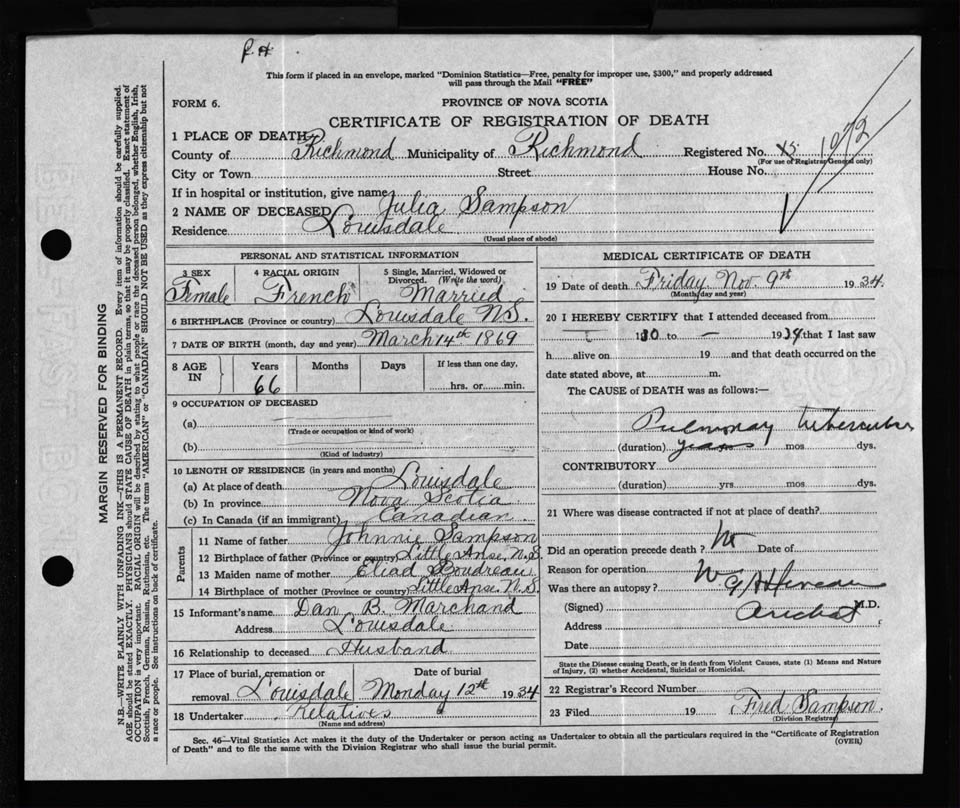 P. H.
This form if placed in an envelope, marked "Dominion Statistics—Free, penalty for improper use, $300," and properly addressed
will pass through the Mail "FREE"
FORM 6.
PROVINCE OF NOVA SCOTIA
CERTIFICATE OF REGISTRATION OF DEATH
1 PLACE OF DEATH
County of Richmond Municipality of Richmond Registered No. 1073
(For use of Registrar General only)
City or Town Street House No.
If in hospital or institution, give name
2 NAME OF DECEASED Julia Sampson
Residence Louisdale
(Usual place of abode)
PERSONAL AND STATISTICAL INFORMATION
3 SEX 4 RACIAL ORIGIN 5 Single, Married, Widowed or
Divorced. (Write the word)
Female French Married
6 BIRTHPLACE (Province or country) Louisdale N.S.
7 DATE OF BIRTH (month, day and year) March 14th 1869
8 AGE IN Years Months Days If less than one day,
66 hrs. or min.
9 OCCUPATION OF DECEASED
(a)
(Trade or occupation or kind of work)
(b)
(Kind of industry)
10 LENGTH OF RESIDENCE (in years and months)
(a) At place of death Louisdale
(b) In province Nova Scotia
(c) In Canada (if an immigrant) Canadian
Parents
11 Name of father Johnnie Sampson
12 Birthplace of father (Province or country) Little Anse N.S.
13 Maiden name of mother Eliad Boudreau
14 Birthplace of mother (Province or country) Little Anse N.S.
15 Informant's name Dan B. Marchand
Address Louisdale
16 Relationship to deceased Husband
17 Place of burial, cremation or Date of burial
removal Louisdale Monday 12th 1934
18 Undertaker Relatives
(Name and address)
MEDICAL CERTIFICATE OF DEATH
19 Date of death Friday Nov. 9th 1934
(Month, day and year)
20 I HEREBY CERTIFY that I attended deceased from
to 1934 that I last saw
h alive on 19 and that death occurred on the
date stated above, at m.
The CAUSE of DEATH was as follows:—
Pulmonary tuberculosis
(duration) years mos dys.
CONTRIBUTORY
(duration) yrs mos dys.
21 Where was disease contracted if not at place of death?
Did an operation precede death? no Date of
Reason for operation
Was there an autopsy?
(Signed) M.D.
Address Arichat
Date
State the Disease causing Death, or in death from Violent Causes, state (1) Means and Nature
of Injury, (2) whether Accidental, Suicidal or Homicidal.
22 Registrar's Record Number
23 Filed 19 Fred Sampson
(Division Registrar)
Sec. 46—Vital Statistics Act makes it the duty of the Undertaker or person acting as Undertaker to obtain all the particulars required in the "Certificate of Registration
of Death" and to file the same with the Division Registrar who shall issue the burial permit. (OVER)
MARGIN RESERVED FOR BINDING
N.B.—WRITE PLAINLY WITH UNFADING INK—THIS IS A PERMANENT RECORD. Every item of information should be carefully supplied.
AGE should be stated EXACTLY. PHYSICIANS should STATE CAUSE OF DEATH in plain terms, so that it may be properly classified. Exact statement of
OCCUPATION is very important. RACIAL ORIGIN will be described by stating to what people or race the deceased person belonged, whether English, Irish,
Scottish, French, German, Russian, Ruthenian, etc. The terms "AMERICAN" or "CANADIAN" SHOULD NOT BE USED as they express citizenship but not
a race or people. See instructions on back of certificate.